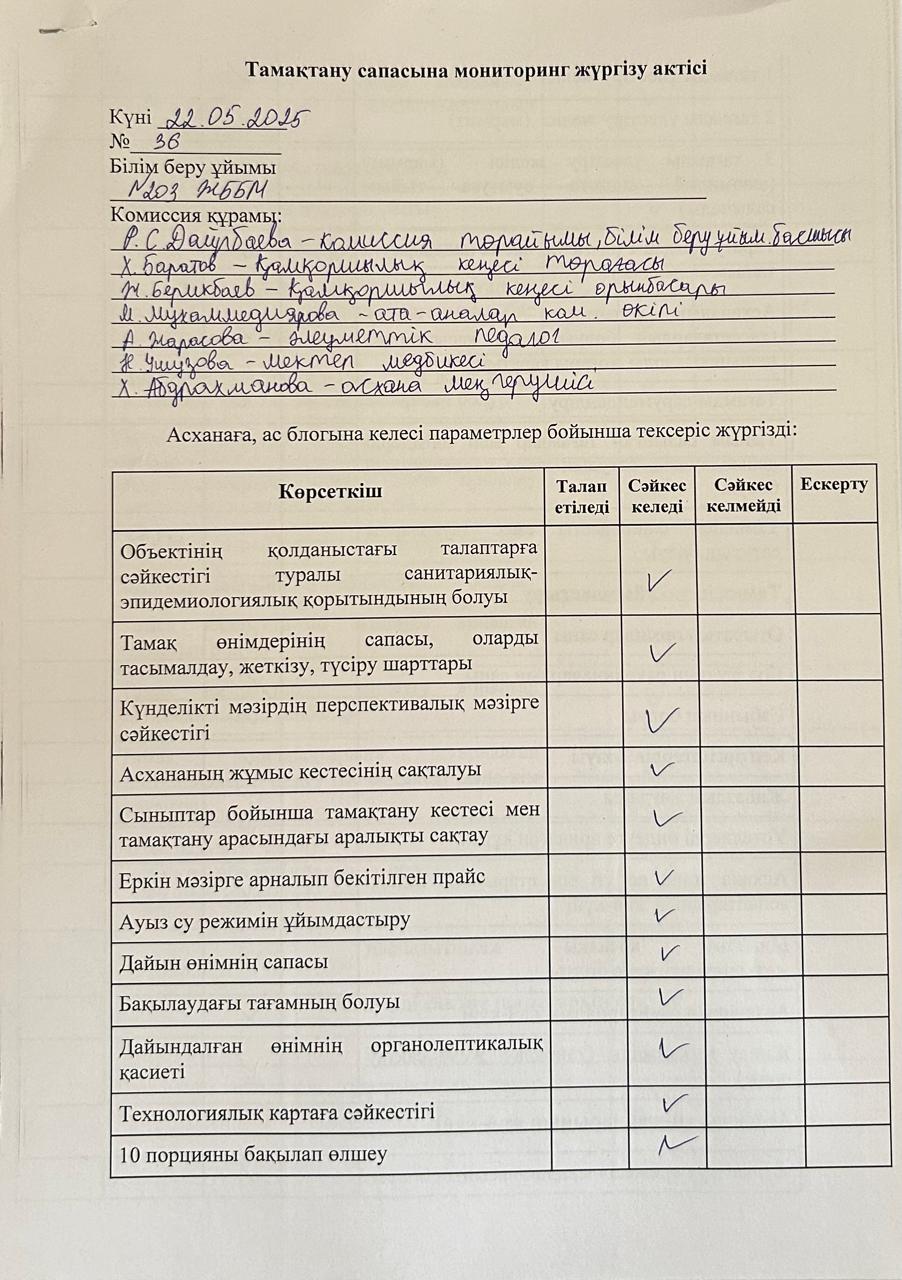 Тамақтану сапасына мониторинг жүргізу актісі
Күні 22.05.2025
№ 36
Білім беру ұйымы
№203 ЖББМ
Комиссия құрамы:
Р.С.Даулбаева – камиссия төрайымы, білім беру ұйым. басшысы
Х. Баратов – Қамқоршылық кеңесі төрағасы
Ж. Берикбаев – Қамқоршылық кеңесі орынбасары
М. Мухаммедиярова – ата-аналар ком. өкілі
А. Жарасова – әлеуметтік педагог
– мектеп медбикесі
Х. Абдрахманова – асхана меңгерушісі
Асханаға, ас блогына келесі параметрлер бойынша тексеріс жүргізді:
Көрсеткіш Талап етіледі Сәйкес келеді Сәйкес келмейді Ескерту
Объектінің қолданыстағы талаптарға
сәйкестігі туралы санитариялық-
эпидемиологиялық қорытындының болуы ✓
Тамақ өнімдерінің сапасы, оларды
тасымалдау, жеткізу, түсіру шарттары ✓
Күнделікті мәзірдің перспективалық мәзірге
сәйкестігі ✓
Асхананың жұмыс кестесінің сақталуы ✓
Сыныптар бойынша тамақтану кестесі мен
тамақтану арасындағы аралықты сақтау ✓
Еркін мәзірге арналып бекітілген прайс ✓
Ауыз су режимін ұйымдастыру ✓
Дайын өнімнің сапасы ✓
Бақылаудағы тағамның болуы ✓
Дайындалған өнімнің органолептикалық
қасиеті ✓
Технологиялық картаға сәйкестігі ✓
10 порцияны бақылап өлшеу ✓